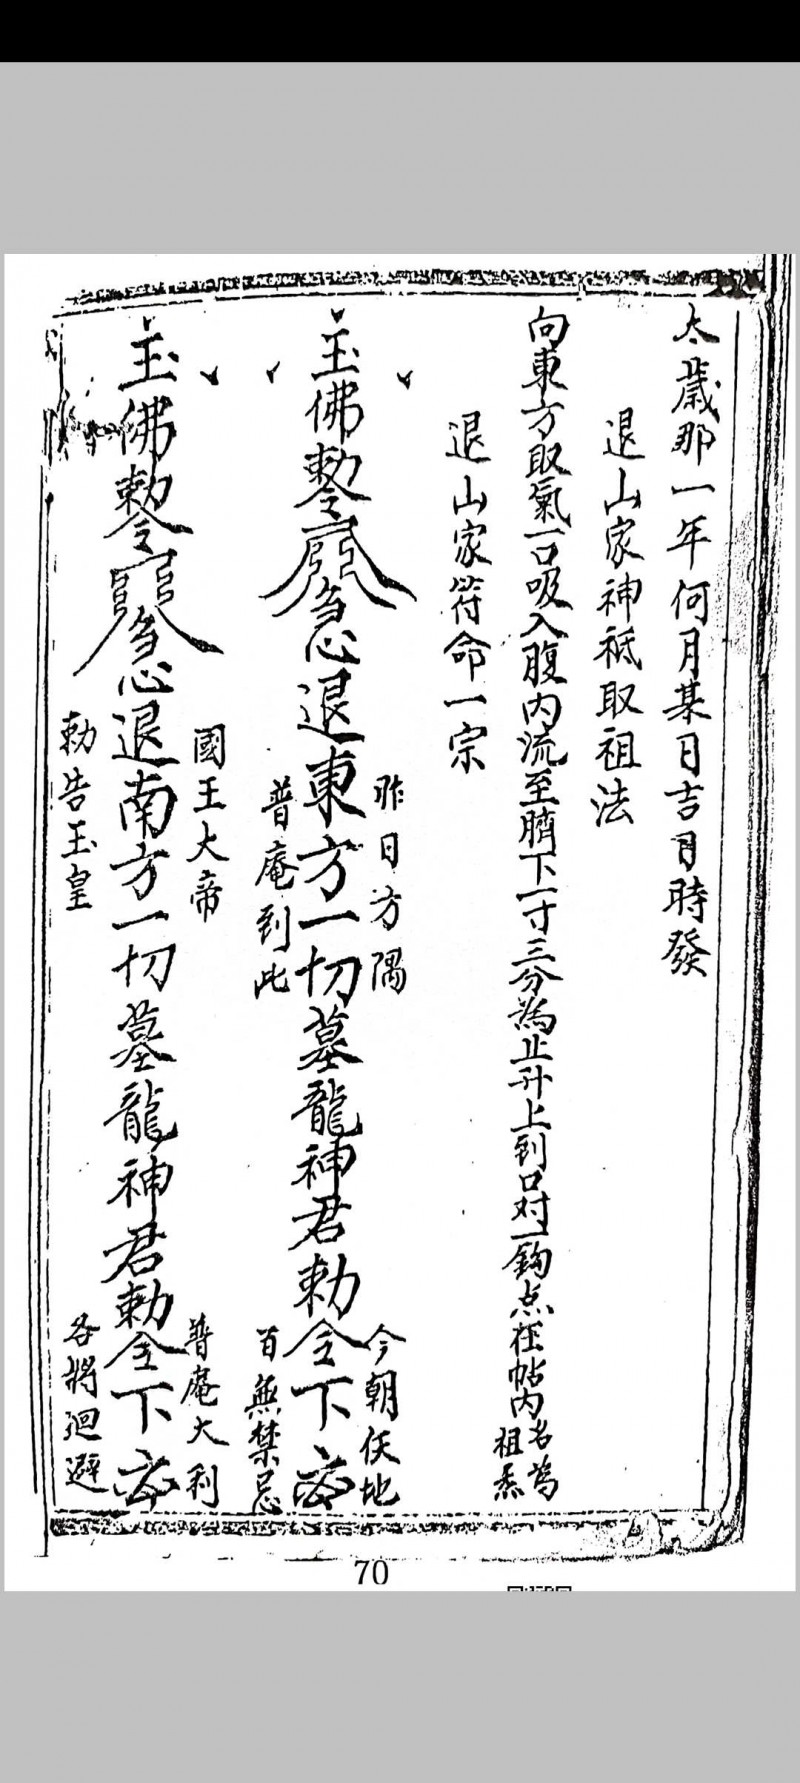 太歲那一年何月某日吉日時發
退山家神祗取祖法
向東方取氣一口吸入腹内流至臍下一寸三分為止升上到口对一鈎点在帖内名為
祖炁
退山家符命一宗
玉佛敕令
急退東方一切墓龍神君勅令下
昨日方隅
普庵到此
今朝任地
百無禁忌
玉佛敕令
急退南方一切墓龍神君勅令下
國王大帝
勅告玉皇
普庵大利
各將迴避
70